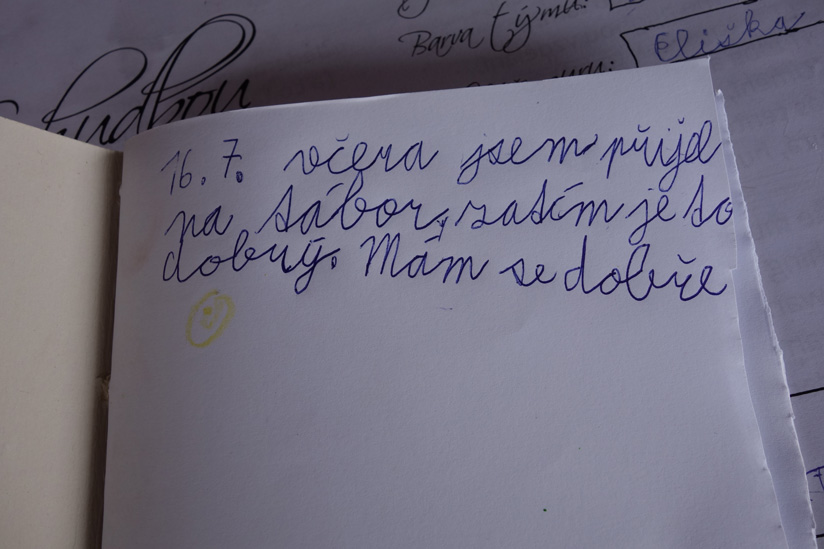 Barva týmu:
Eliška
hudbou
16. 7. včera jsem přijel
na tábor, zatím je to
dobrý. Mám se dobře